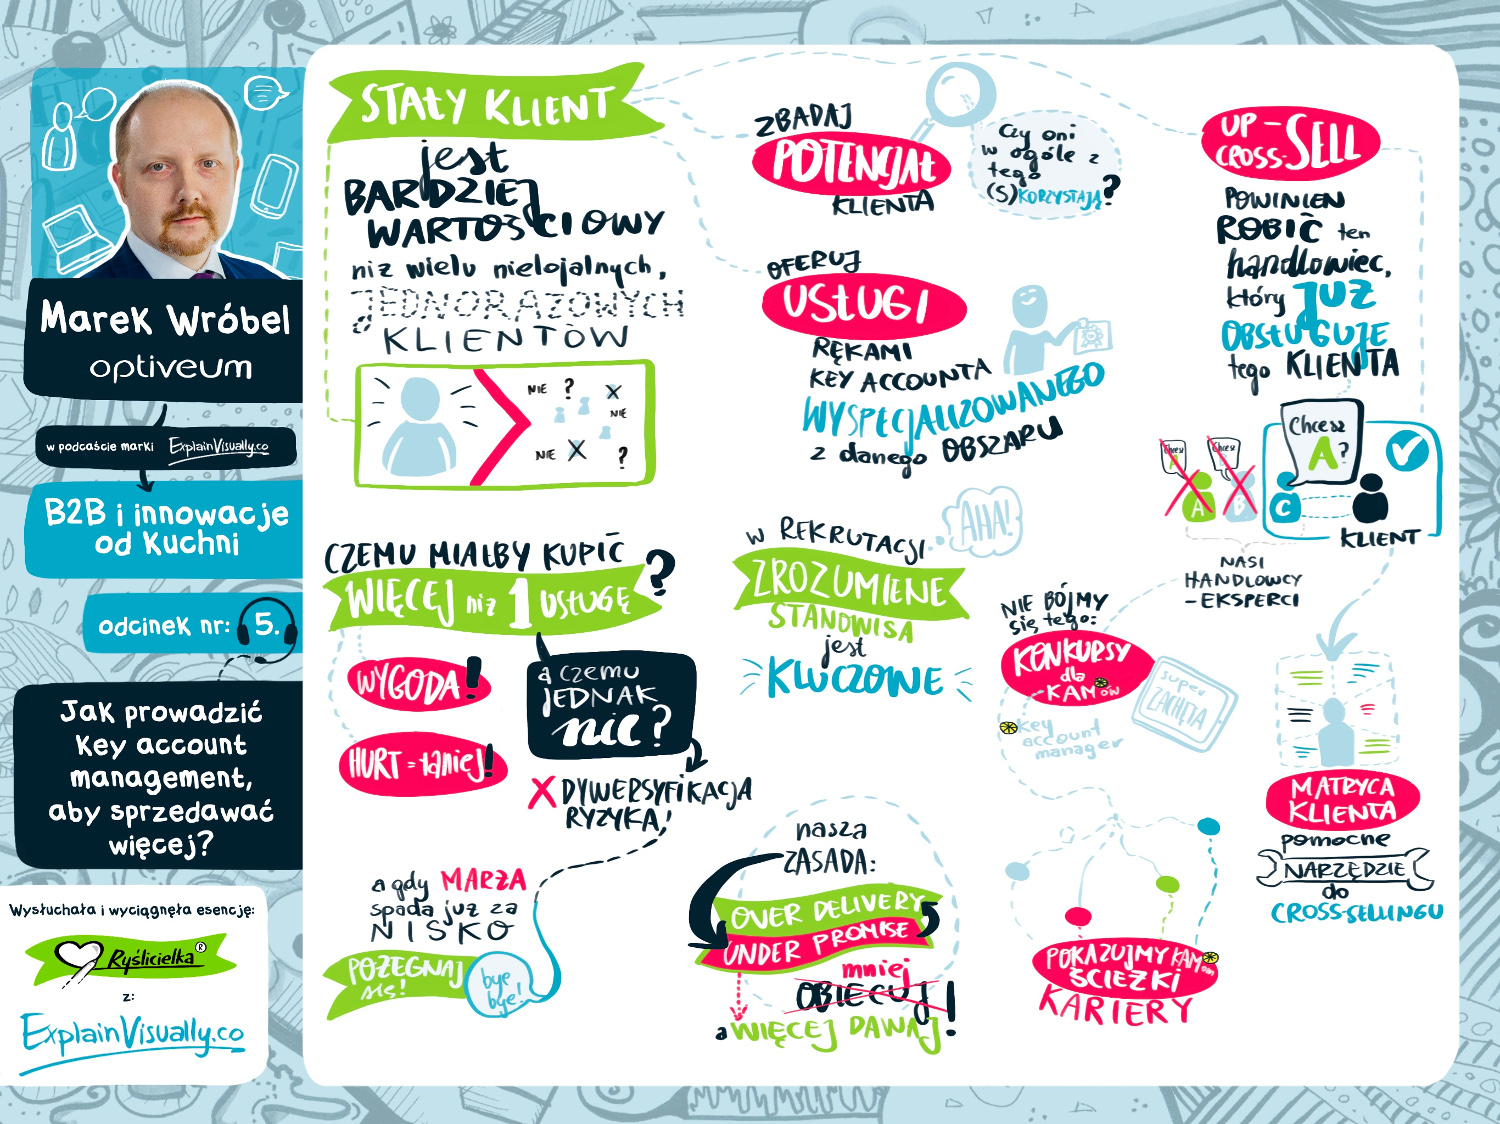 Marek Wróbel
optiveum
w podcaście marki ExplainVisually.co
B2B i innowacje
od Kuchni
odcinek nr: 5.
Jak prowadzić
Key account
management,
aby sprzedawać
więcej?
Wysłuchała i wyciągnęła esencję:
Ryślicielka®
z:
ExplainVisually.co
STAŁY KLIENT
jest
BARDZIEJ
WARTOŚCIOWY
niż wielu nielojalnych,
JEDNORAZOWYCH
KLIENTÓW
NIE ? X
NIE
NIE X ?
CZEMU MIAŁBY KUPIĆ
WIĘCEJ niż 1 USŁUGĘ ?
WYGODA!
HURT = taniej!
a czemu
JEDNAK
nie?
X DYWERSYFIKACJA
RYZYKA!
a gdy MARŻA
spada już za
NISKO
POŻEGNAJ
się!
bye
bye!
ZBADAJ
POTENCJAŁ
KLIENTA
Czy oni
w ogóle z
tego
(S)KORZYSTAJĄ?
OFERUJ
USŁUGI
RĘKAMI
KEY ACCOUNTA
WYSPECJALIZOWANEGO
z danego OBSZARU
W REKRUTACJI
AHA!
ZROZUMIENIE
STANOWISA
jest
KLUCZOWE
nasza
ZASADA:
OVER DELIVERY
UNDER PROMISE
mniej
OBIECUJ
a WIĘCEJ DAWAJ!
UP-
CROSS-SELL
POWINIEN
ROBIĆ ten
handlowiec,
który JUŻ
OBSŁUGUJE
tego KLIENTA
Chcesz
A?
Chcesz
A
Chcesz
A B C
KLIENT
NASI
HANDLOWCY
-EKSPERCI
NIE BÓJMY
się tego:
KONKURSY
dla
KAMów
super
ZACHĘTA
key
account
manager
POKAZUJMY KAMom
ŚCIEŻKI
KARIERY
MATRYCA
KLIENTA
pomocne
NARZĘDZIE
do
CROSS-SELLINGU